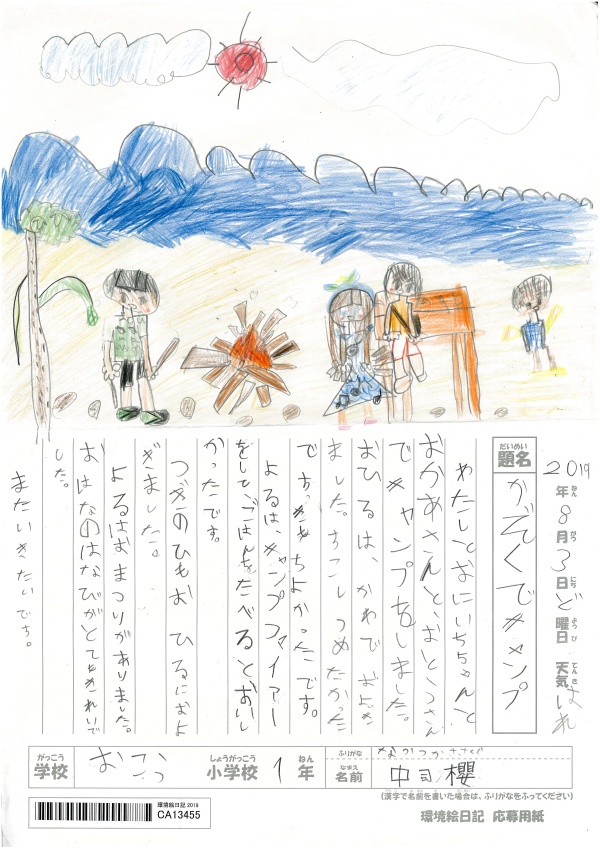 2019年ねん8月がつ3日にちど曜日ようび 天気てんきはれ
題名だいめい
かぞくでキャンプ
わたしとおにいちゃんと
おかあさんと、おとうさん
でキャンプをしました。
おひるは、かわでおよぎ
ました。すこしつめたかった
ですがきもちよかったです。
よるは、キャンプファイアー
をして、ごはんをたべるとおいし
かったです。
つぎのひもおひるにおよ
ぎました。
よるはおまつりがありました。
おはなのはなびがとてもきれいで
した。
またいきたいです。
がっこう 学校
しょうがっこう 小学校 1 ねん 年
ふりがな なかつか
なまえ 名前 中司 櫻
(漢字で名前を書いた場合は、ふりがなをふってください)
環境絵日記 2019
CA13455
環境絵日記 応募用紙